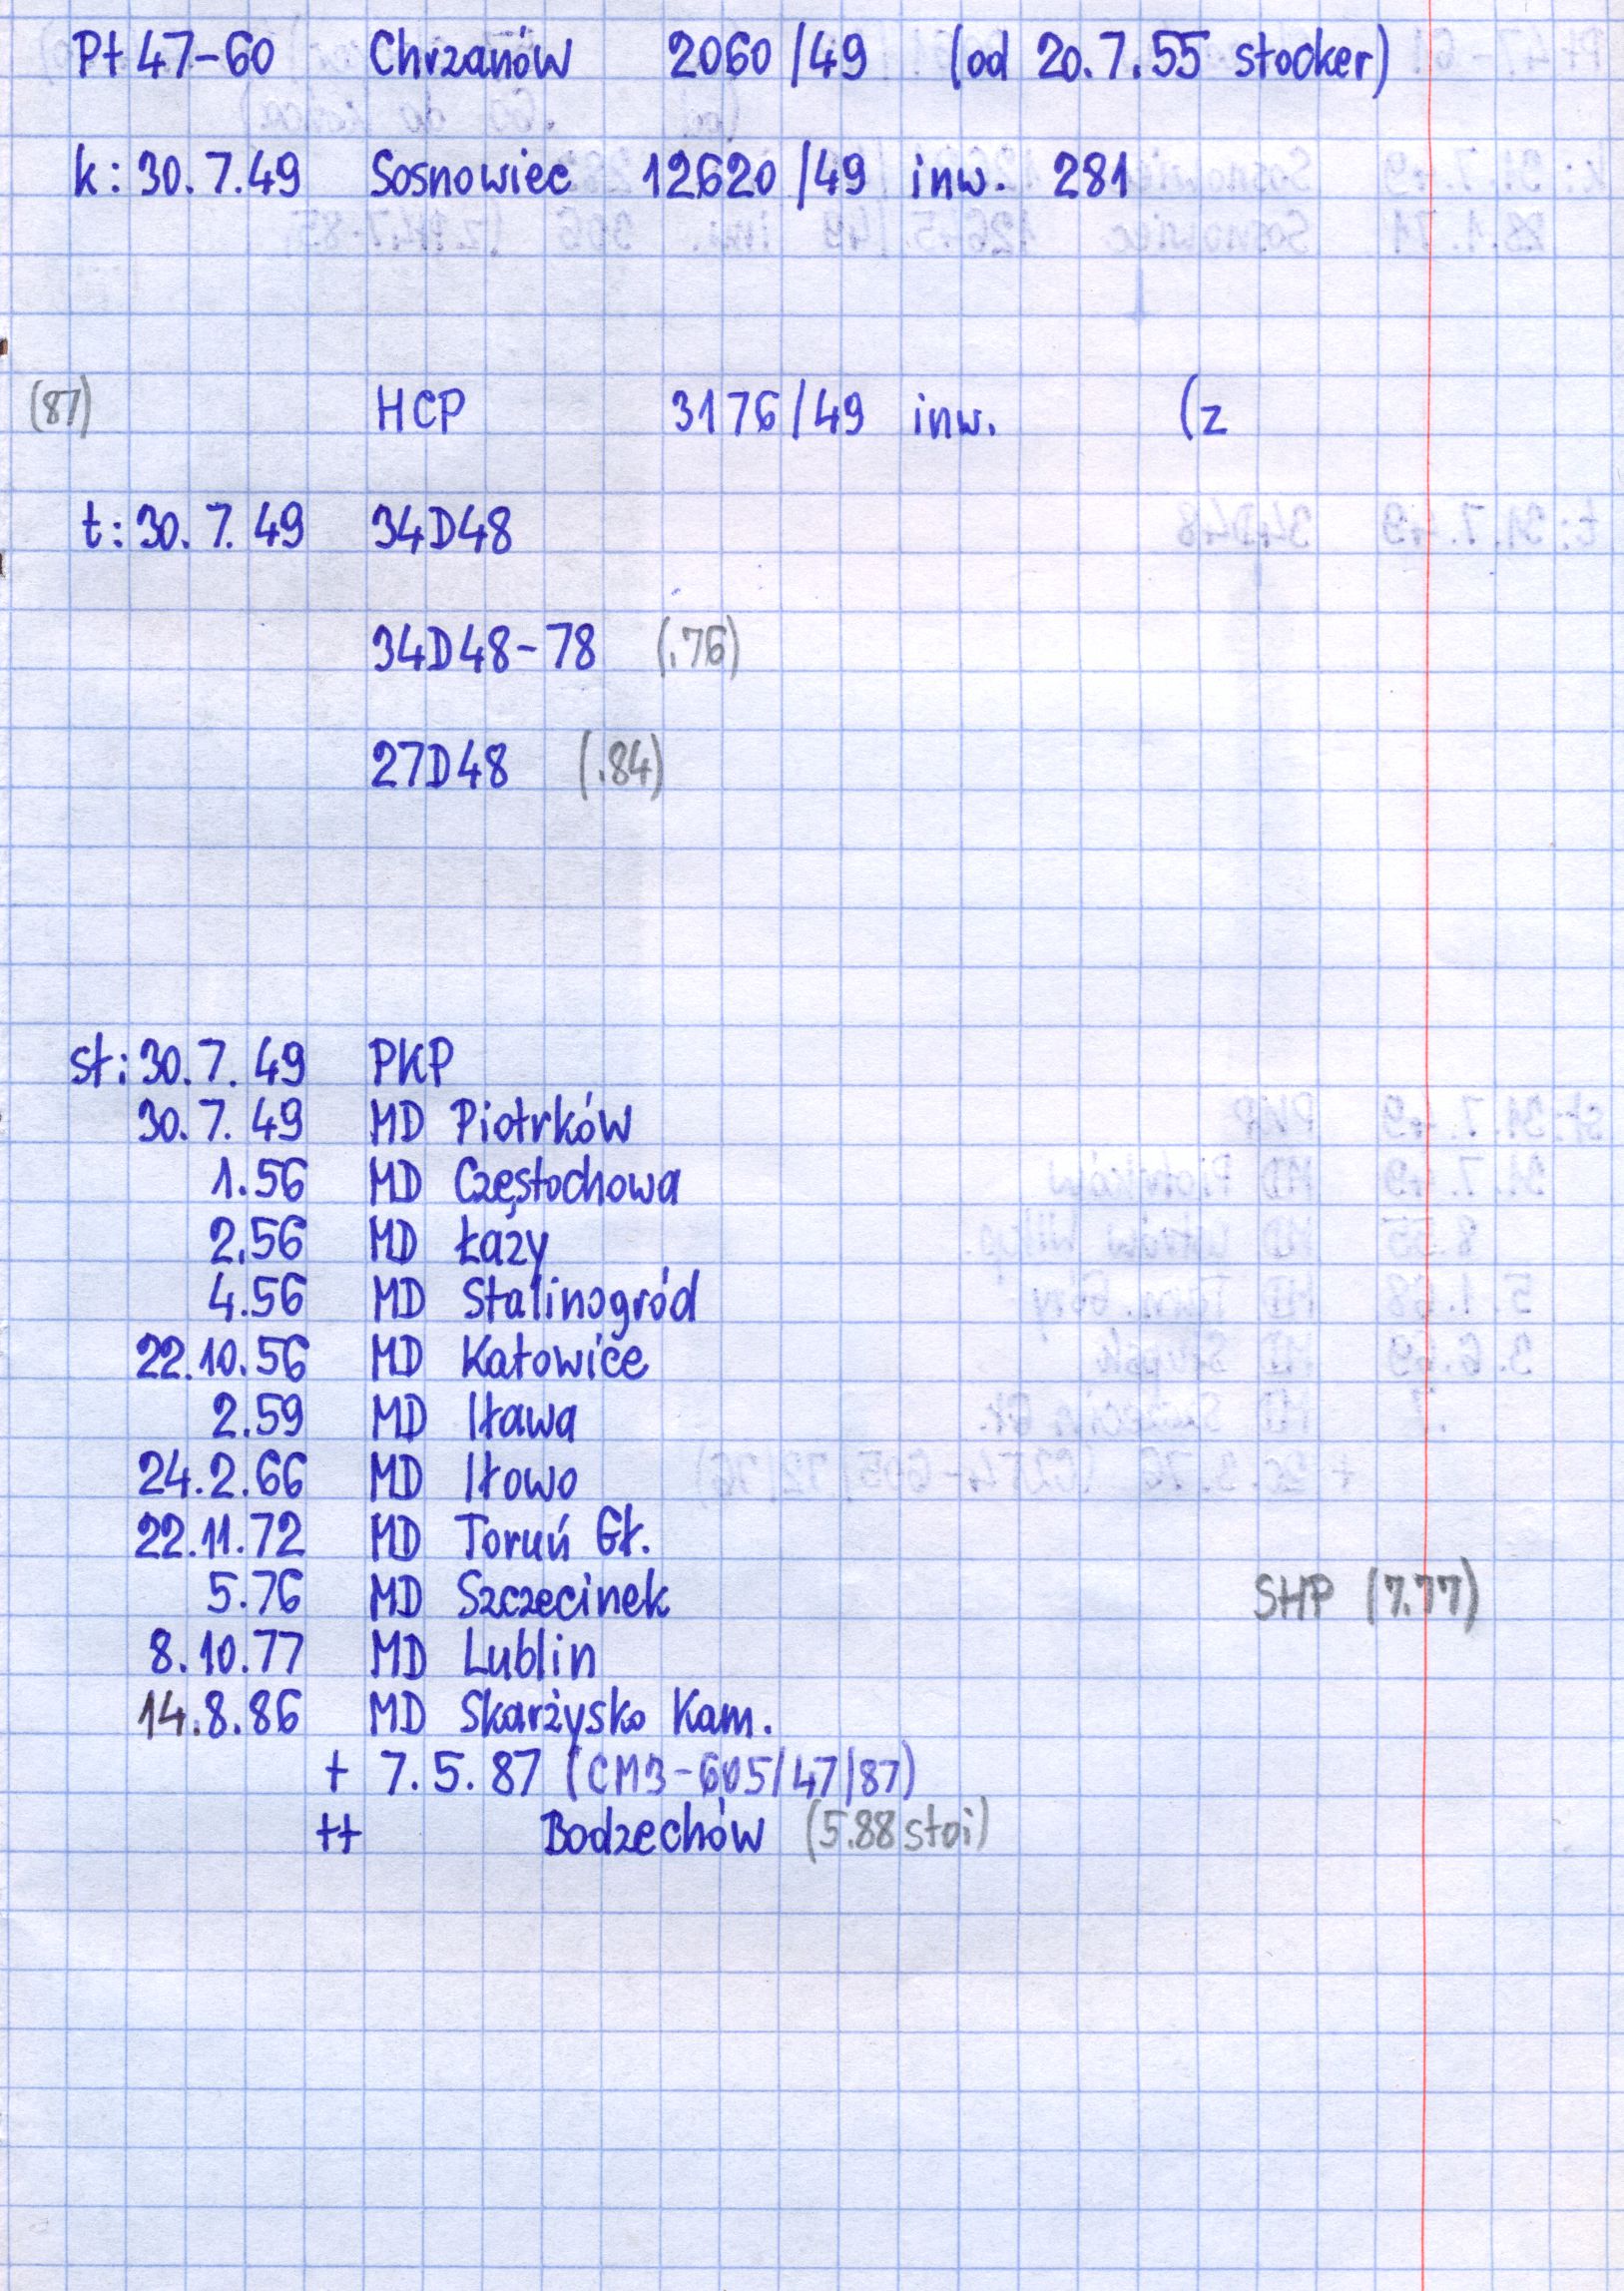 Pt 47-60 Chrzanów 2060/49 (od 20.7.55 stocker)
k: 30.7.49 Sosnowiec 12620/49 inw. 281
(87) HCP 3176/49 inw. (z
t: 30.7.49 34D48
34D48-78 (.76)
27D48 (.84)
st: 30.7.49 PKP
30.7.49 MD Piotrków
1.56 MD Częstochowa
2.56 MD Łazy
4.56 MD Stalinogród
22.10.56 MD Katowice
2.59 MD Iława
24.2.66 MD Iłowo
22.11.72 MD Toruń Gł.
5.76 MD Szczecinek SHP (7.77)
8.10.77 MD Lublin
14.8.86 MD Skarżysko Kam.
+ 7.5.87 (CM3-605/47/87)
++ Bodzechów (5.88 stoi)